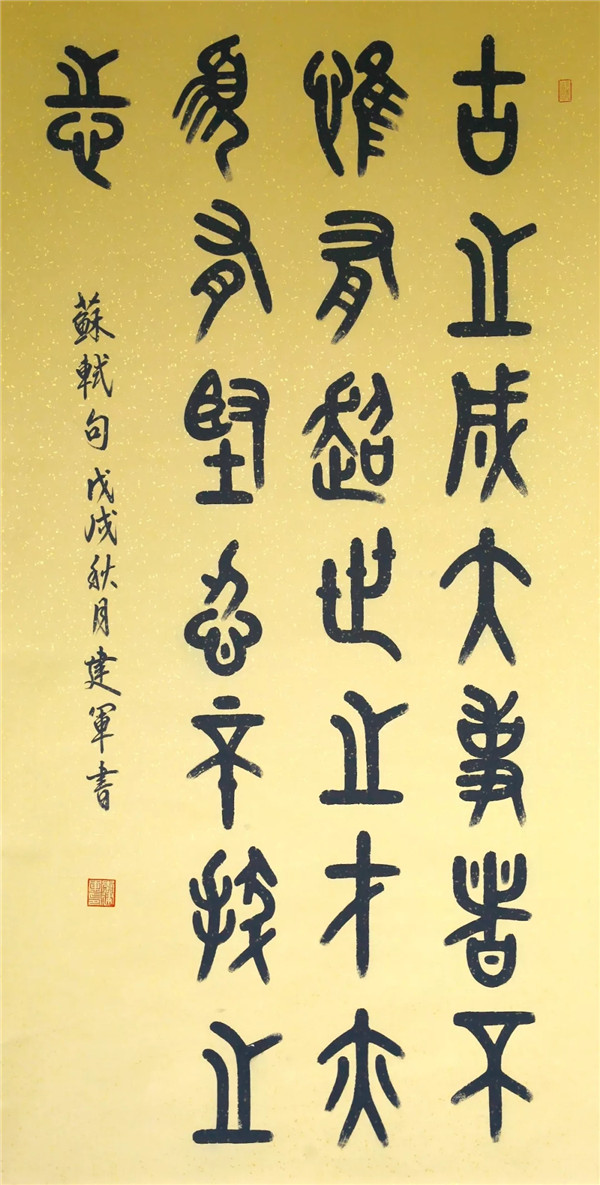 古之成大事者不
惟有超世之才亦
必有堅忍不拔之
志
蘇軾句戊戌秋月建軍書